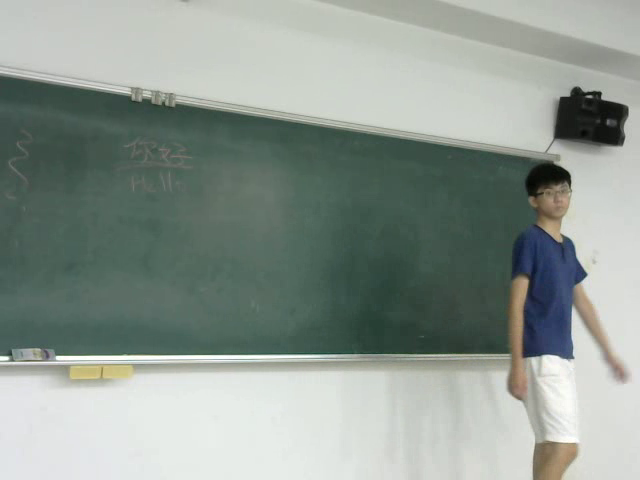 你好
Hello